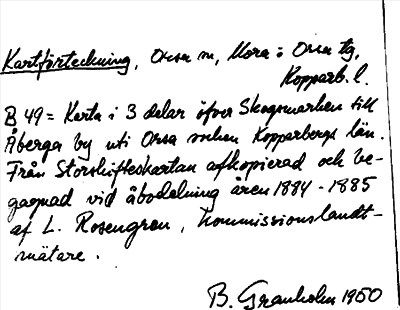 Kartförteckning, Orsa sn, Mora o Orsa tg,
Kopparb. l.
B 49 = Karta i 3 delar öfver Skogsmarken till
Åberga by uti Orsa socken Kopparbergs län.
Från Storskifteskartan afkopierad och be-
gagnad vid åbodelning åren 1884-1885
af L. Rosengren, kommissionslandt-
mätare.
B. Granholm 1950